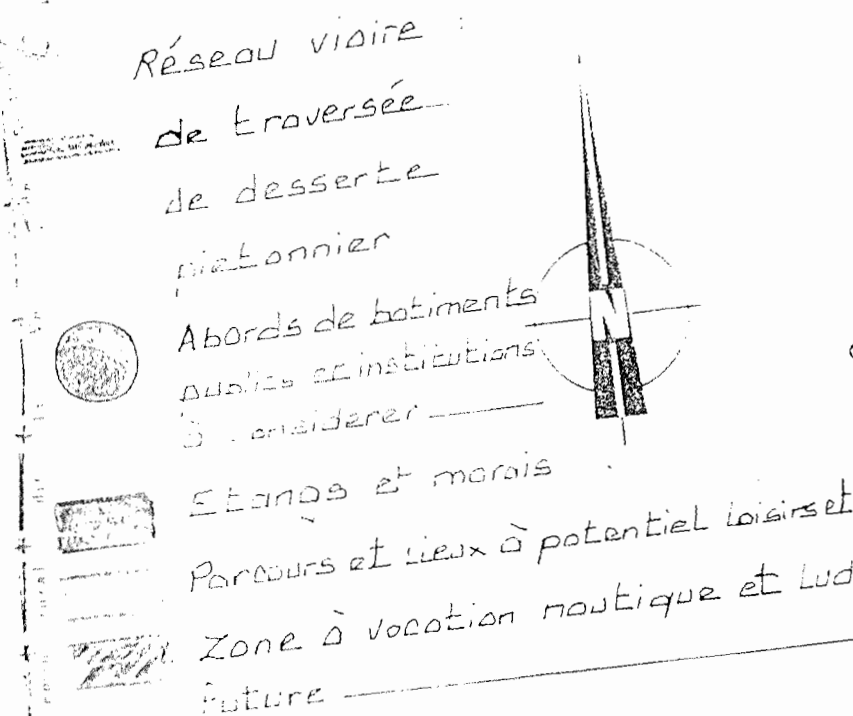 Réseau viaire :
de traversée
de desserte
pietonnier
Abords de batiments
publics et institutions
à considerer
N
Etangs et marais
Parcours et lieux à potentiel loisirs et
Zone à vocation nautique et Lud
future